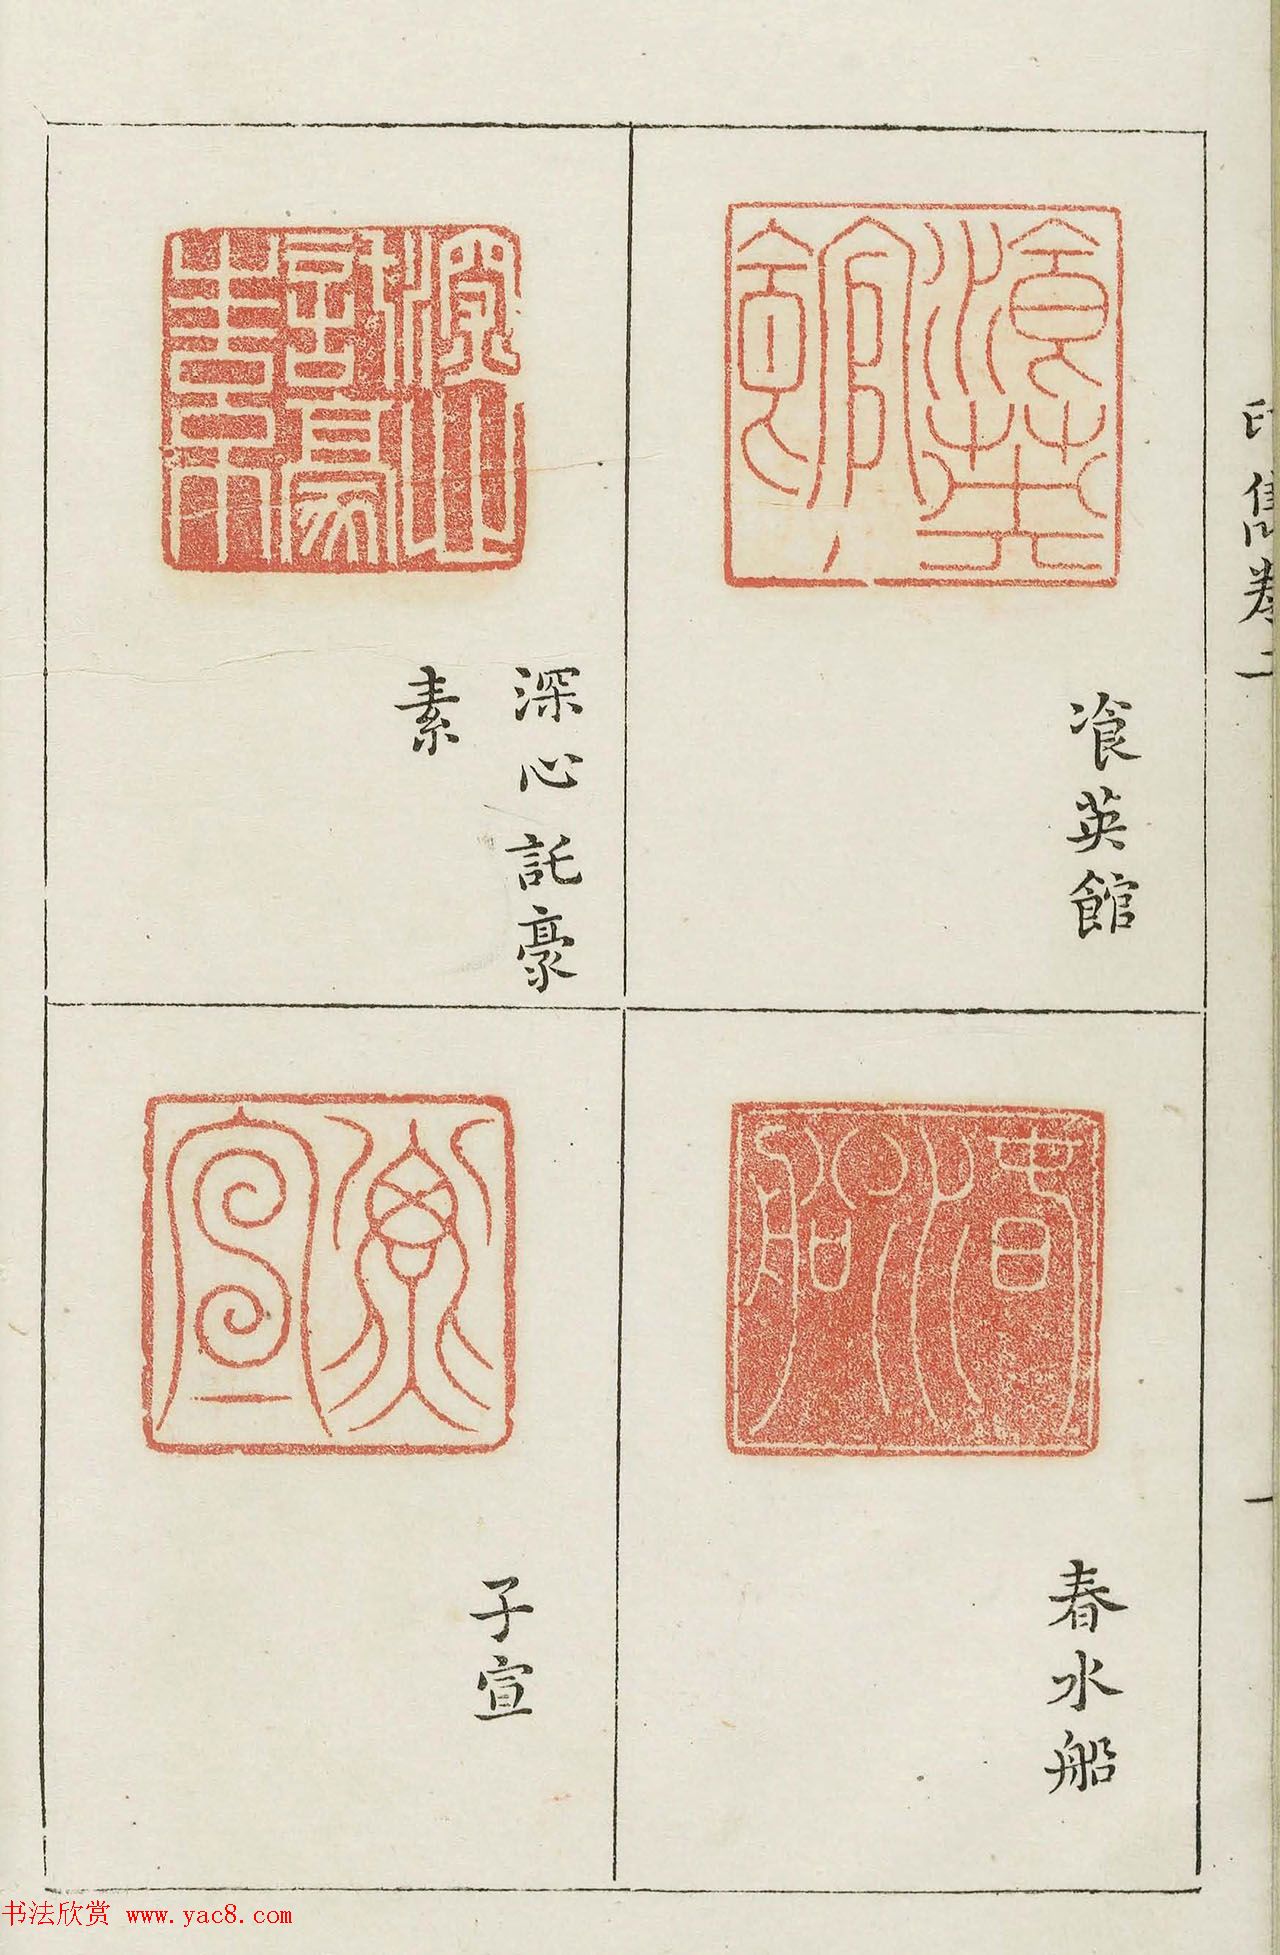 印雋卷二
一
飡英館
深心託豪
素
春水船
子宣
书法欣赏 www.yac8.com